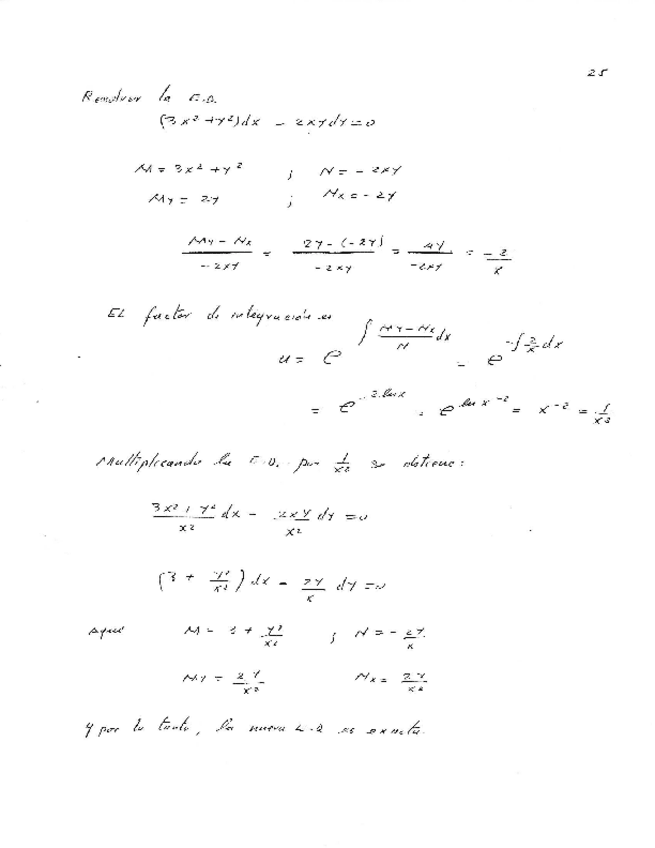 25
Resolver la E.D.
(3x² + y²)dx - 2xydy = 0
M = 3x² + y² ; N = - 2xy
My = 2y ; Nx = - 2y
My - Nx / - 2xy = 2y - (-2y) / - 2xy = 4y / -2xy = - 2 / x
EL factor de integración es
u = e^∫ (My - Nx / N) dx = e^-∫ (2/x) dx
= e^-2 ln x = e^ln x^-2 = x^-2 = 1/x²
Multiplicando la E.D. por 1/x² se obtiene:
3x² + y² / x² dx - 2xy / x² dy = 0
(3 + y²/x²) dx - 2y/x dy = 0
aquí M = 3 + y²/x² ; N = - 2y/x
My = 2y/x² Nx = 2y/x²
y por lo tanto, la nueva E.D. es exacta.